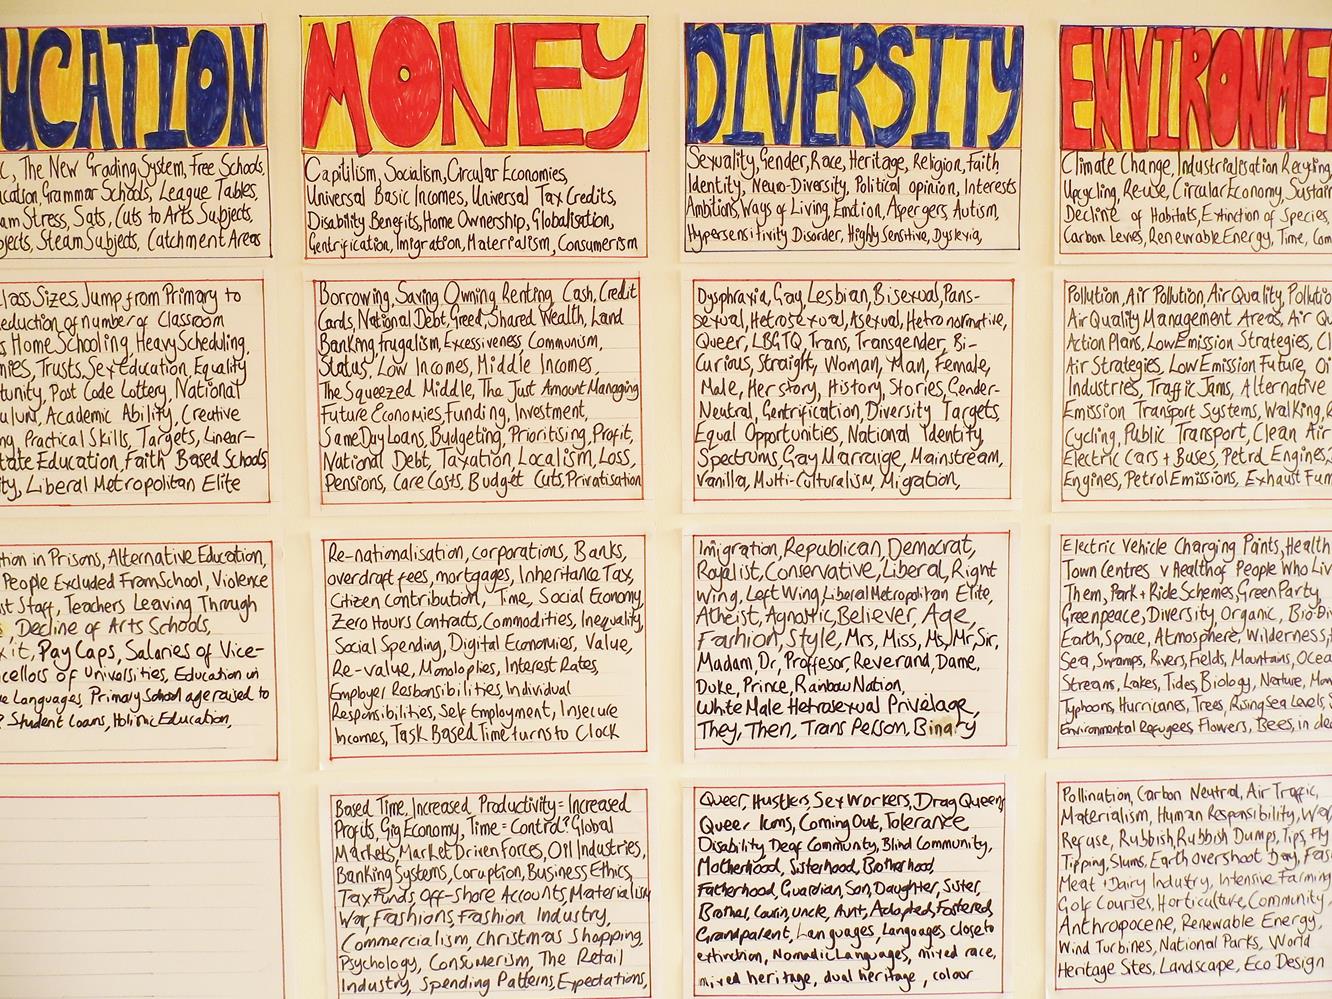 UCATION
C, The New Grading System, Free Schools,
ucation, Grammar Schools, League Tables,
am Stress, Sats, Cuts to Arts Subjects,
bjects, Steam Subjects, Catchment Areas
lass Sizes, Jump from Primary to
eduction of number of Classroom
s Home Schooling, Heavy Scheduling,
mies, Trusts, Sex Education, Equality
tunity, Post Code Lottery, National
culum, Academic Ability, Creative
ng, Practical Skills, Targets, Linear-
tate Education, Faith Based Schools
ity, Liberal Metropolitan Elite
tion in Prisons, Alternative Education,
People Excluded From School, Violence
st Staff, Teachers Leaving Through
s, Decline of Arts Schools,
xit, Pay Caps, Salaries of Vice-
cellors of Universities, Education in
ve Languages, Primary School age raised to
? Student Loans, Holistic Education,
MONEY
Capitilism, Socialism, Circular Economies,
Universal Basic Incomes, Universal Tax Credits,
Disability Benefits, Home Ownership, Globalisation,
Gentrification, Imigration, Materialism, Consumerism
Borrowing, Saving, Owning, Renting, Cash, Credit
Cards, National Debt, Greed, Shared Wealth, Land
Banking, frugalism, Excessiveness Communism,
Status, Low Incomes, Middle Incomes,
The Squeezed Middle, The Just Amount Managing
Future Economies, Funding, Investment,
Same Day Loans, Budgeting, Prioritising, Profit,
National Debt, Taxation, Localism, Loss,
Pensions, Care Costs, Budget Cuts, Privatisation
Re-nationalisation, corporations, Banks,
overdraft fees, mortgages, Inheritance Tax,
Citizen Contribution, Time, Social Economy,
Zero Hours Contracts, Commodities, Inequality,
Social Spending, Digital Economies, Value,
Re-value, Monoloplies, Interest Rates,
Employer Responsibilities, Individual
Responsibilities, Self Employment, Insecure
Incomes, Task Based Time turns to Clock
Based Time, Increased Productivity = Increased
Profits, Gig Economy, Time = Control? Global
Markets, Market Driven Forces, Oil Industries,
Banking Systems, Coruption, Business Ethics,
Tax Funds, Off-Shore Accounts, Materialism
War, Frashions, Fashion Industry,
Commercialism, Christmas Shopping,
Psychology, Consumerism, The Retail
Industry, Spending Patterns, Expectations,
DIVERSITY
Sexuality, Gender, Race, Heritage, Religion, Faith
Identity, Neuro-Diversity, Political opinion, Interests
Ambitions, Ways of Living, Emotion, Aspergers, Autism,
Hypersensitivity Disorder, Highly Sensitive, Dyslexia,
Dysphraxia, Gay, Lesbian, Bisexual, Pans-
sexual, Hetrosexual, Asexual, Hetronormative,
Queer, LBGTQ, Trans, Transgender, Bi-
Curious, Straight, Woman, Man, Female,
Male, Her story, History, Stories, Gender-
Neutral, Gentrification, Diversity Targets
Equal Opportunities, National Identity,
Spectrums, Gay Marraige, Mainstream,
Vanilla, Multi-Culturalism, Migration,
Imigration, Republican, Democrat,
Royalist, Conservative, Liberal, Right
Wing, Left Wing Liberal Metropolitan Elite,
Atheist, Agnostic, Believer, Age,
Fashion, Style, Mrs, Miss, Ms, Mr, Sir,
Madam, Dr, Proffesor, Reverand, Dame,
Duke, Prince, Rainbow Nation,
White Male Hetrosexual Privelage,
They, Then, Trans Person, Binary
Queer, Hustlers, Sex Workers, Drag Queens
Queer Icons, Coming Out, Tolerance
Disability, Deaf Community, Blind Community,
Motherhood, Sisterhood, Brotherhood,
Fatherhood, Guardian, Son, Daughter, Sister,
Brother, Cousin, Uncle, Aunt, Adopted, Fostered,
Grandparent, Languages, Languages close to
extinction, Nomadic Languages, mixed race,
mixed heritage, dual heritage, colour
ENVIRONME
Climate Change, Industrialisation Recycling,
Upcycling, Re-use, Circular Economy, Sustain
Decline of Habitats, Extinction of Species,
Carbon Levies, Renewable Energy, Time, Com
Pollution, Air Pollution, Air Quality, Pollutio
Air Quality Management Areas, Air Qu
Action Plans, Low Emission Strategies, Cl
Air Strategies, Low Emission Future, Oi
Industries, Traffic Jams, Alternative
Emission Transport Systems, Walking,
Cycling, Public Transport, Clean Air
Electric Cars + Buses, Petrol Engines,
Engines, Petrol Emissions, Exhaust Fum
Electric Vehicle Charging Points, Health
Town Centres v Health of People Who Liv
Them, Park + Ride Schemes, Green Party,
Greenpeace, Diversity Organic, Bio-Di
Earth, Space, Atmosphere, Wilderness,
Sea, Swamps, Rivers, Fields, Mountains, Ocea
Streams, Lakes, Tides, Biology, Nerture, Mon
Typhoons, Hurricanes, Trees, Rising Sea Levels,
Environmental Refugees, Flowers, Bees, in dec
Pollination, Carbon Neutral, Air Traffic,
Materialism, Human Responsibility, War,
Refuse, Rubbish, Rubbish Dumps, Tips, Fly
Tipping, Slums, Earth Overshoot Day, Fash
Meat + Dairy Industry, Intensive Farming
Golf Courses, Horticulture, Community
Anthropocene, Renewable Energy,
Wind Turbines, National Parks, World
Heritage Sites, Landscape, Eco Design